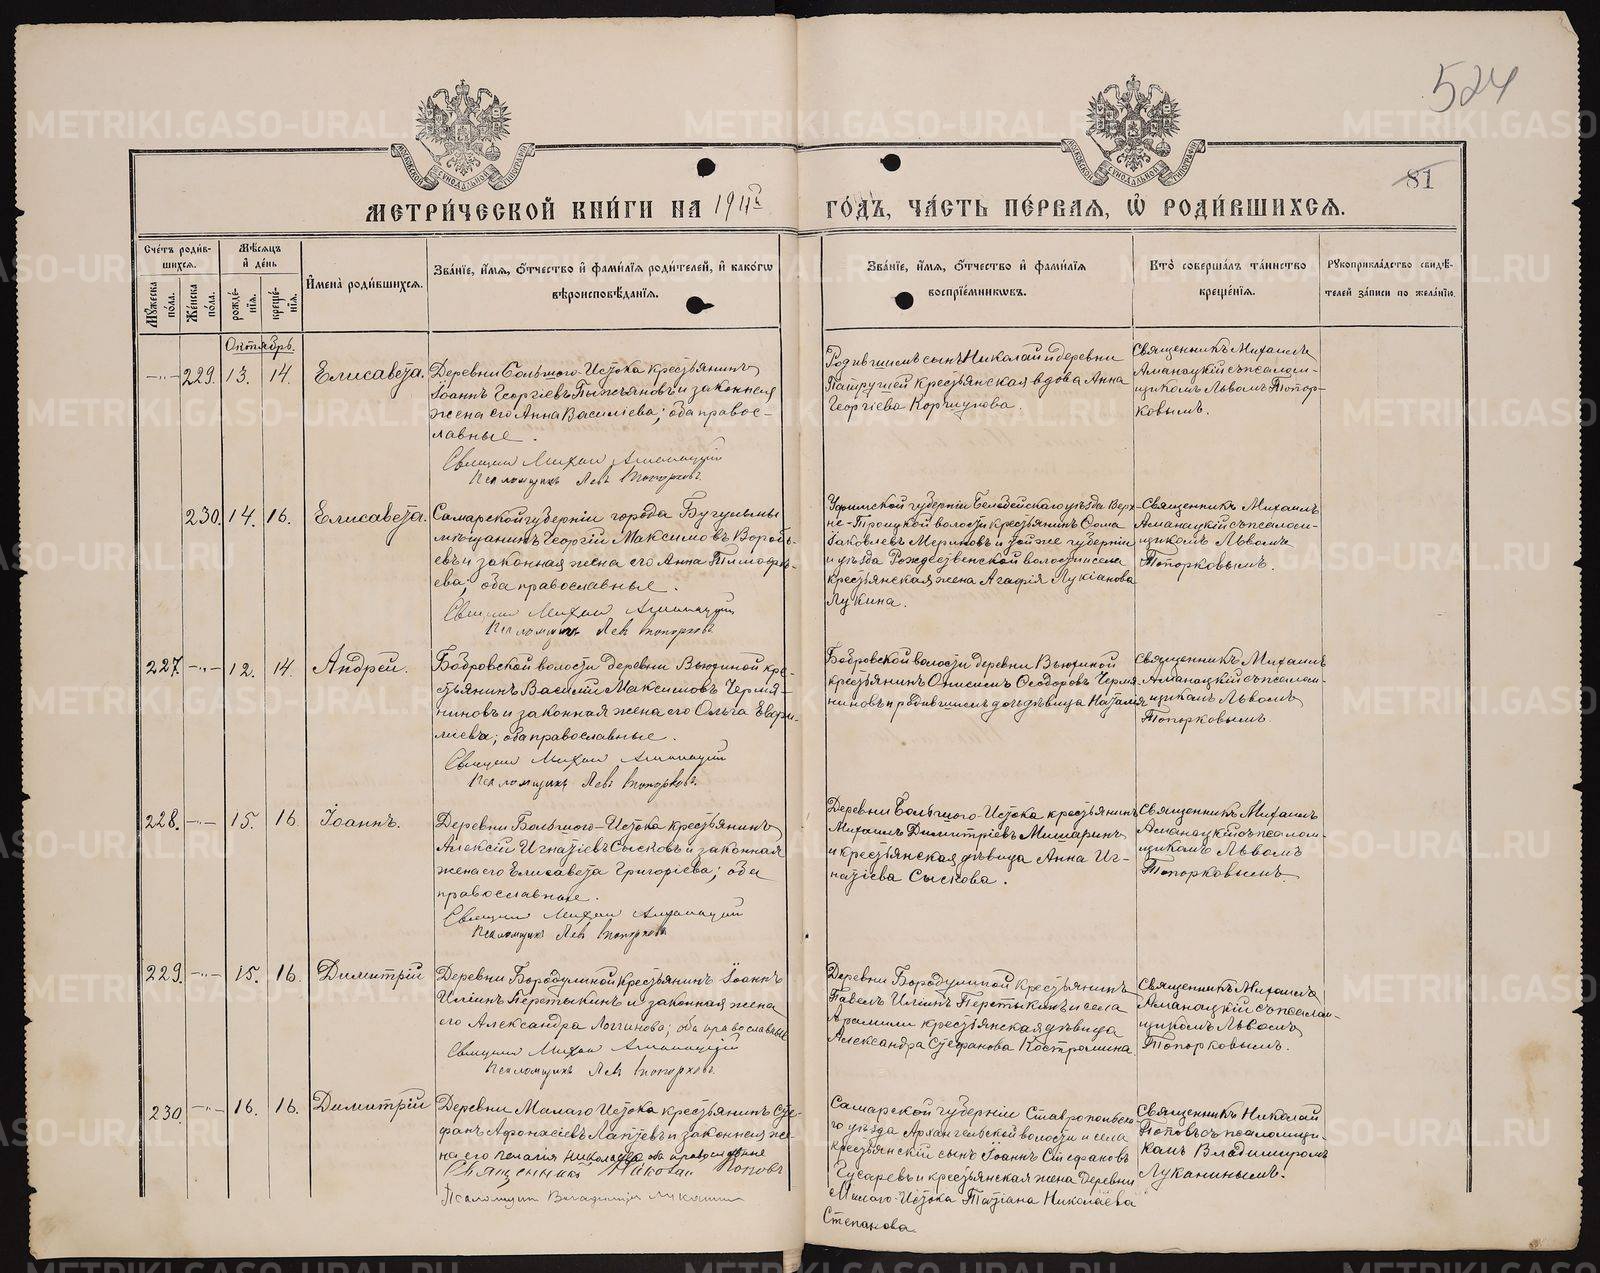 524
81
МЕТРИ́ЧЕСКОЙ КНИ́ГИ НА 1911й ГО́ДЪ, ЧА́СТЬ ПЕ́РВАЯ, Ѡ҆ РОДИ́ВШИХСЯ.
Сче́тъ роди́в-
шихся.
Мѣ́сяцъ
и҆ де́нь
Мꙋ́жеска
по́ла.
Же́нска
по́ла.
рожде́-
нїя.
креще́-
нїя.
И҆мена̀ роди́вшихся.
Зва́нїе, и҆́мя, ѻ҆́тчество и҆ фами́лїя роди́телей, и҆ како́гѡ
вѣроисповѣ́данїя.
Зва́нїе, и҆́мя, ѻ҆́тчество и҆ фами́лїя
воспрїе́мникѡвъ.
Кто̀ соверша́лъ та́инство
креще́нїя.
Рꙋкоприкла́дство свидѣ́-
телей за́писи по жела́нїю.
Октябрь.
229. 13. 14. Елисавета.
Деревни Большого-Истока крестьянинъ
Іоаннъ Георгіевъ и законная
жена его Анна Василіева; оба правос-
лавные.
Священ Михаил
Псаломщикъ Левъ Топорковъ
Родившаго сынъ Николай и деревни
крестьянская вдова Анна
Георгіева Коршунова.
Священникъ Михаилъ
съ псалом-
щикомъ Львомъ Топор-
ковымъ.
230. 14. 16. Елисавета.
Самарской губерніи города Бугульмы
мѣщанинъ Георгій Максимовъ Вороб-
евъ и законная жена его Анна Тимофѣ-
ева, оба православные.
Священ Михаил
Псаломщикъ Левъ Топорковъ
Уфимской губерніи Белебейскаго уѣзда Верх-
не-Троицкой волости крестьянинъ Сома
Іаковлевъ и той же губерніи
и уѣзда Рождественской волости и села
крестьянская жена Агафія Лукіанова
Лукина.
Священникъ Михаилъ
съ псалом-
щикомъ Львомъ
Топорковымъ.
227. 12. 14. Андрей.
Бобровской волости деревни Вьюхиной кре-
стьянинъ Василій Максимовъ Чермя-
ниновъ и законная жена его Ольга
оба православные.
Священ Михаил
Псаломщикъ Левъ Топорковъ
Бобровской волости деревни Вьюхиной
крестьянинъ Онисимъ Ѳеодоровъ Чермя-
ниновъ и дочь дѣвица Наталія
Священникъ Михаилъ
съ псалом-
щикомъ Львомъ
Топорковымъ.
228. 15. 16. Іоаннъ.
Деревни Большого-Истока крестьянинъ
Алексій Игнатіевъ Сысковъ и законная
жена его Елисавета Григоріева; оба
православные.
Священ Михаил
Псаломщикъ Левъ Топорковъ
Деревни Большого-Истока крестьянинъ
Михаилъ Димитріевъ Мишаринъ
и крестьянская дѣвица Анна Иг-
натіева Сыскова.
Священникъ Михаилъ
съ псалом-
щикомъ Львомъ
Топорковымъ.
229. 15. 16. Димитрій
Деревни Бородулиной крестьянинъ Іоаннъ
Иліинъ Перетыкинъ и законная жена
его Александра Логгинова; оба православные
Священ Михаил
Псаломщикъ Левъ Топорковъ
Деревни Бородулиной крестьянинъ
Павелъ Иліинъ Перетыкинъ и села
Арамили крестьянская дѣвица
Александра Стефанова Костромина
Священникъ Михаилъ
съ псалом-
щикомъ Львомъ
Топорковымъ.
230. 16. 16. Димитрій
Деревни Малаго Истока крестьянинъ Сте-
фанъ Афонасіевъ Лаптевъ и законная же-
на его Николаева оба православные
Священникъ Николай Поповъ
Псаломщик Владимір Луканин
Самарской губерніи Ставропольска-
го уѣзда Архангельской волости и села
крестьянскій сынъ Іоаннъ Стефановъ
Гусаревъ и крестьянская жена деревни
Малаго-Истока Татіана Николаева
Степанова
Священникъ Николай
Поповъ съ псаломщи-
комъ Владиміромъ
Луканинымъ.
METRIKI.GASO-URAL.RU